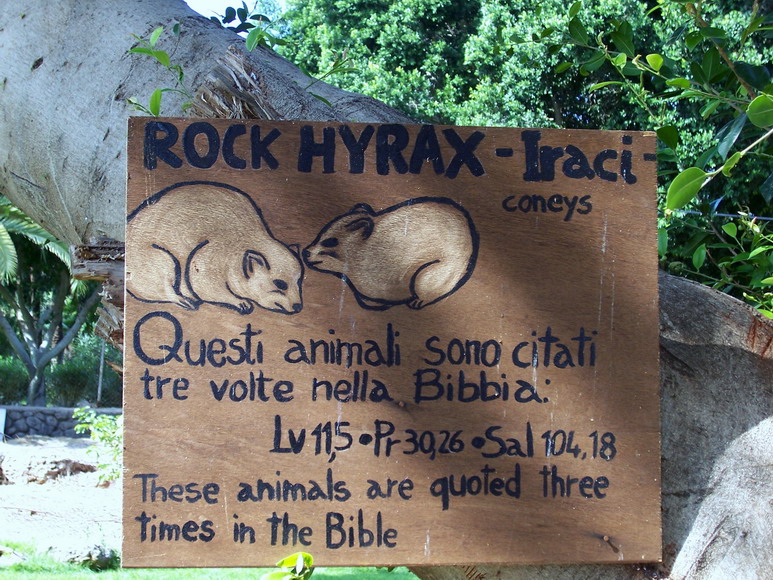 ROCK HYRAX - Iraci -
coneys
Questi animali sono citati
tre volte nella Bibbia:
Lv 11,5 • Pr 30,26 • Sal 104,18
These animals are quoted three
times in the Bible